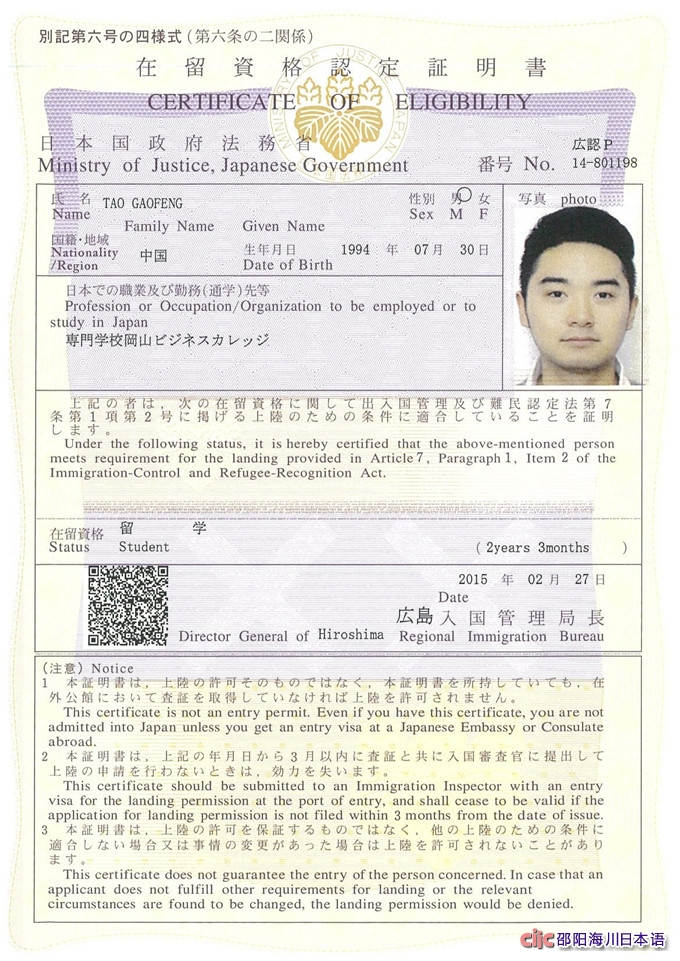 別記第六号の四様式(第六条の二関係)
在留資格認定証明書
CERTIFICATE OF ELIGIBILITY
日本国政府法務省
Ministry of Justice, Japanese Government
広認P
番号 No. 14-801198
氏名 TAO GAOFENG
Name
Family Name Given Name
性別 男 女
Sex M F
写真 photo
国籍・地域
Nationality 中国
/Region
生年月日 1994 年 07 月 30 日
Date of Birth
日本での職業及び勤務(通学)先等
Profession or Occupation/Organization to be employed or to
study in Japan
専門学校岡山ビジネスカレッジ
上記の者は,次の在留資格に関して出入国管理及び難民認定法第7
条第1項第2号に掲げる上陸のための条件に適合していることを証明
します。
Under the following status, it is hereby certified that the above-mentioned person
meets requirement for the landing provided in Article 7, Paragraph 1, Item 2 of the
Immigration-Control and Refugee-Recognition Act.
在留資格 留 学
Status Student (2years 3months )
2015 年 02 月 27 日
Date
広島入国管理局長
Director General of Hiroshima Regional Immigration Bureau
(注意) Notice
1 本証明書は,上陸の許可そのものではなく,本証明書を所持していても,在
外公館において査証を取得していなければ上陸を許可されません。
This certificate is not an entry permit. Even if you have this certificate, you are not
admitted into Japan unless you get an entry visa at a Japanese Embassy or Consulate
abroad.
2 本証明書は,上記の年月日から3月以内に査証と共に入国審査官に提出して
上陸の申請を行わないときは,効力を失います。
This certificate should be submitted to an Immigration Inspector with an entry
visa for the landing permission at the port of entry, and shall cease to be valid if the
application for landing permission is not filed within 3 months from the date of issue.
3 本証明書は,上陸の許可を保証するものではなく,他の上陸のための条件に
適合しない場合又は事情の変更があった場合は上陸を許可されないことがあり
ます。
This certificate does not guarantee the entry of the person concerned. In case that an
applicant does not fulfill other requirements for landing or the relevant
circumstances are found to be changed, the landing permission would be denied.
cjic 邵阳海川日本语